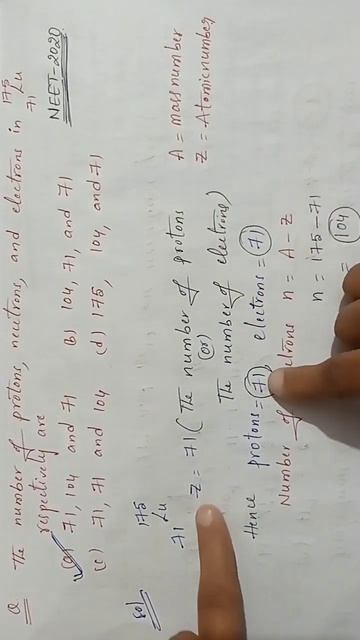 Q The number of protons, neutrons, and electrons in ¹⁷⁵₇₁Lu
respectively are NEET-2020
(a) 71, 104 and 71 b) 104, 71, and 71
(c) 71, 71 and 104 (d) 175, 104, and 71
Sol ¹⁷⁵₇₁Lu A = mass number
Z = Atomic number
Z = 71 (The number of protons
(or)
The number of electrons)
Hence protons = 71, electrons = 71
Number of n = A - Z
n = 175 - 71
= 104